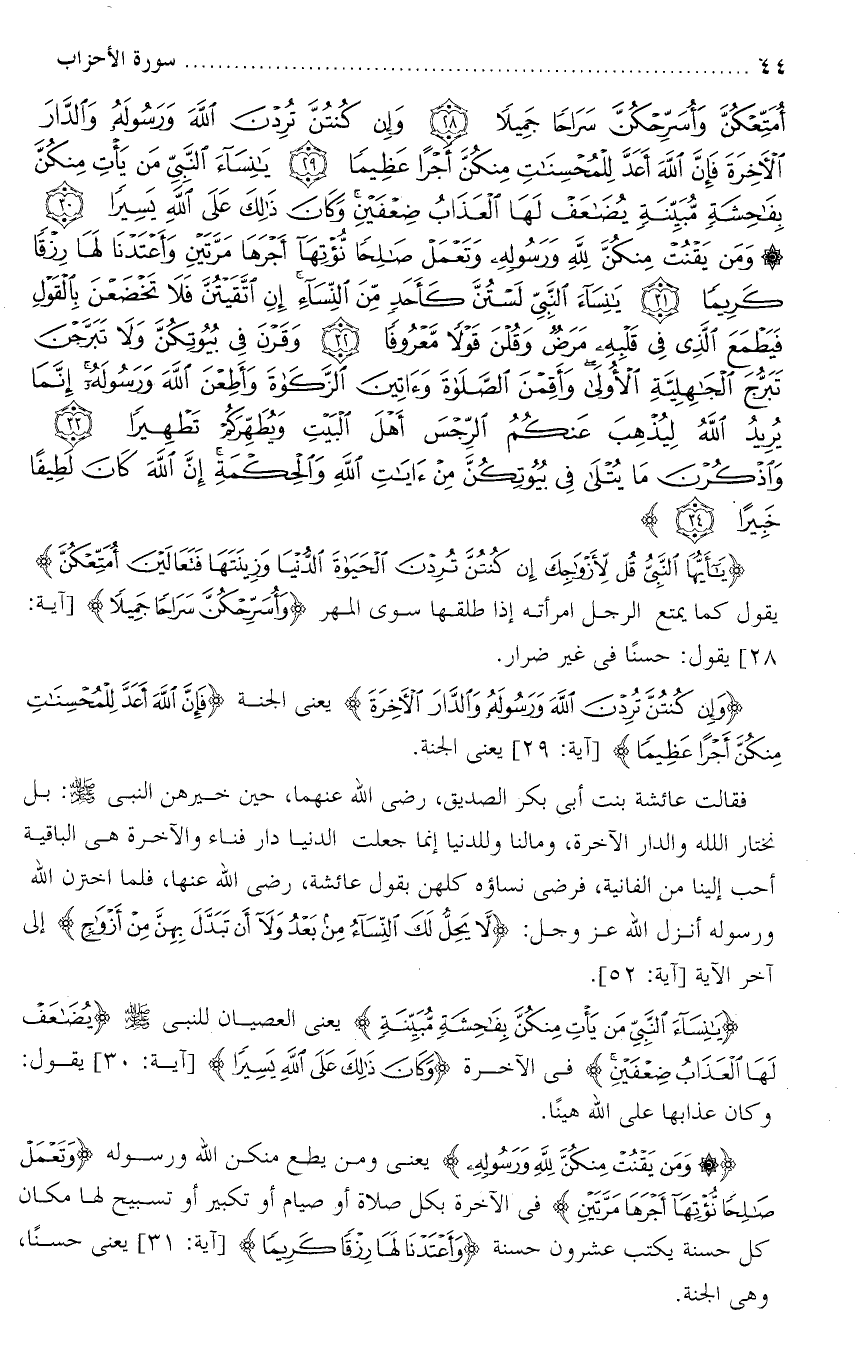 ٤٤ ........................................................................ سورة الأحزاب
أُمَتِّعْكُنَّ وَأُسَرِّحْكُنَّ سَرَاحًا جَمِيلًا ﴿٢٨﴾ وَإِن كُنتُنَّ تُرِدْنَ اللَّهَ وَرَسُولَهُ وَالدَّارَ
الْآخِرَةَ فَإِنَّ اللَّهَ أَعَدَّ لِلْمُحْسِنَاتِ مِنكُنَّ أَجْرًا عَظِيمًا ﴿٢٩﴾ يَانِسَآءَ النَّبِيِّ مَن يَأْتِ مِنكُنَّ
بِفَاحِشَةٍ مُّبَيِّنَةٍ يُضَاعَفْ لَهَا الْعَذَابُ ضِعْفَيْنِ ۚ وَكَانَ ذَالِكَ عَلَى اللَّهِ يَسِيرًا ﴿٣٠﴾
۞ وَمَن يَقْنُتْ مِنكُنَّ لِلَّهِ وَرَسُولِهِ وَتَعْمَلْ صَالِحًا نُّؤْتِهَآ أَجْرَهَا مَرَّتَيْنِ وَأَعْتَدْنَا لَهَا رِزْقًا
كَرِيمًا ﴿٣١﴾ يَانِسَآءَ النَّبِيِّ لَسْتُنَّ كَأَحَدٍ مِّنَ النِّسَآءِ ۚ إِنِ اتَّقَيْتُنَّ فَلَا تَخْضَعْنَ بِالْقَوْلِ
فَيَطْمَعَ الَّذِى فِى قَلْبِهِ مَرَضٌ وَقُلْنَ قَوْلًا مَّعْرُوفًا ﴿٣٢﴾ وَقَرْنَ فِى بُيُوتِكُنَّ وَلَا تَبَرَّجْنَ
تَبَرُّجَ الْجَاهِلِيَّةِ الْأُولَىٰ ۖ وَأَقِمْنَ الصَّلَوٰةَ وَءَاتِينَ الزَّكَوٰةَ وَأَطِعْنَ اللَّهَ وَرَسُولَهُ ۚ إِنَّمَا
يُرِيدُ اللَّهُ لِيُذْهِبَ عَنكُمُ الرِّجْسَ أَهْلَ الْبَيْتِ وَيُطَهِّرَكُمْ تَطْهِيرًا ﴿٣٣﴾
وَاذْكُرْنَ مَا يُتْلَىٰ فِى بُيُوتِكُنَّ مِنْ ءَايَاتِ اللَّهِ وَالْحِكْمَةِ ۚ إِنَّ اللَّهَ كَانَ لَطِيفًا
خَبِيرًا ﴿٣٤﴾ ﴾
﴿يَٰٓأَيُّهَا النَّبِيُّ قُل لِّأَزْوَاجِكَ إِن كُنتُنَّ تُرِدْنَ الْحَيَوٰةَ الدُّنْيَا وَزِينَتَهَا فَتَعَالَيْنَ أُمَتِّعْكُنَّ﴾
يقول كما يمتع الرجل امرأته إذا طلقها سوى المهر ﴿وَأُسَرِّحْكُنَّ سَرَاحًا جَمِيلًا﴾ [آية:
٢٨] يقول: حسنًا فى غير ضرار.
﴿وَإِن كُنتُنَّ تُرِدْنَ اللَّهَ وَرَسُولَهُ وَالدَّارَ الْآخِرَةَ﴾ يعنى الجنة ﴿فَإِنَّ اللَّهَ أَعَدَّ لِلْمُحْسِنَاتِ
مِنكُنَّ أَجْرًا عَظِيمًا﴾ [آية: ٢٩] يعنى الجنة.
فقالت عائشة بنت أبى بكر الصديق، رضى الله عنهما، حين خيرهن النبى ﷺ: بل
نختار اللله والدار الآخرة، ومالنا وللدنيا إنما جعلت الدنيا دار فناء والآخرة هى الباقية
أحب إلينا من الفانية، فرضى نساؤه كلهن بقول عائشة، رضى الله عنها، فلما اخترن الله
ورسوله أنزل الله عز وجل: ﴿لَّا يَحِلُّ لَكَ النِّسَآءُ مِنۢ بَعْدُ وَلَآ أَن تَبَدَّلَ بِهِنَّ مِنْ أَزْوَاجٍ﴾ إلى
آخر الآية [آية: ٥٢].
﴿يَانِسَآءَ النَّبِيِّ مَن يَأْتِ مِنكُنَّ بِفَاحِشَةٍ مُّبَيِّنَةٍ﴾ يعنى العصيان للنبى ﷺ ﴿يُضَاعَفْ
لَهَا الْعَذَابُ ضِعْفَيْنِ ۚ﴾ فى الآخرة ﴿وَكَانَ ذَالِكَ عَلَى اللَّهِ يَسِيرًا﴾ [آية: ٣٠] يقول:
وكان عذابها على الله هينًا.
﴿۞ وَمَن يَقْنُتْ مِنكُنَّ لِلَّهِ وَرَسُولِهِ﴾ يعنى ومن يطع منكن الله ورسوله ﴿وَتَعْمَلْ
صَالِحًا نُّؤْتِهَآ أَجْرَهَا مَرَّتَيْنِ﴾ فى الآخرة بكل صلاة أو صيام أو تكبير أو تسبيح لها مكان
كل حسنة يكتب عشرون حسنة ﴿وَأَعْتَدْنَا لَهَا رِزْقًا كَرِيمًا﴾ [آية: ٣١] يعنى حسنًا،
وهى الجنة.